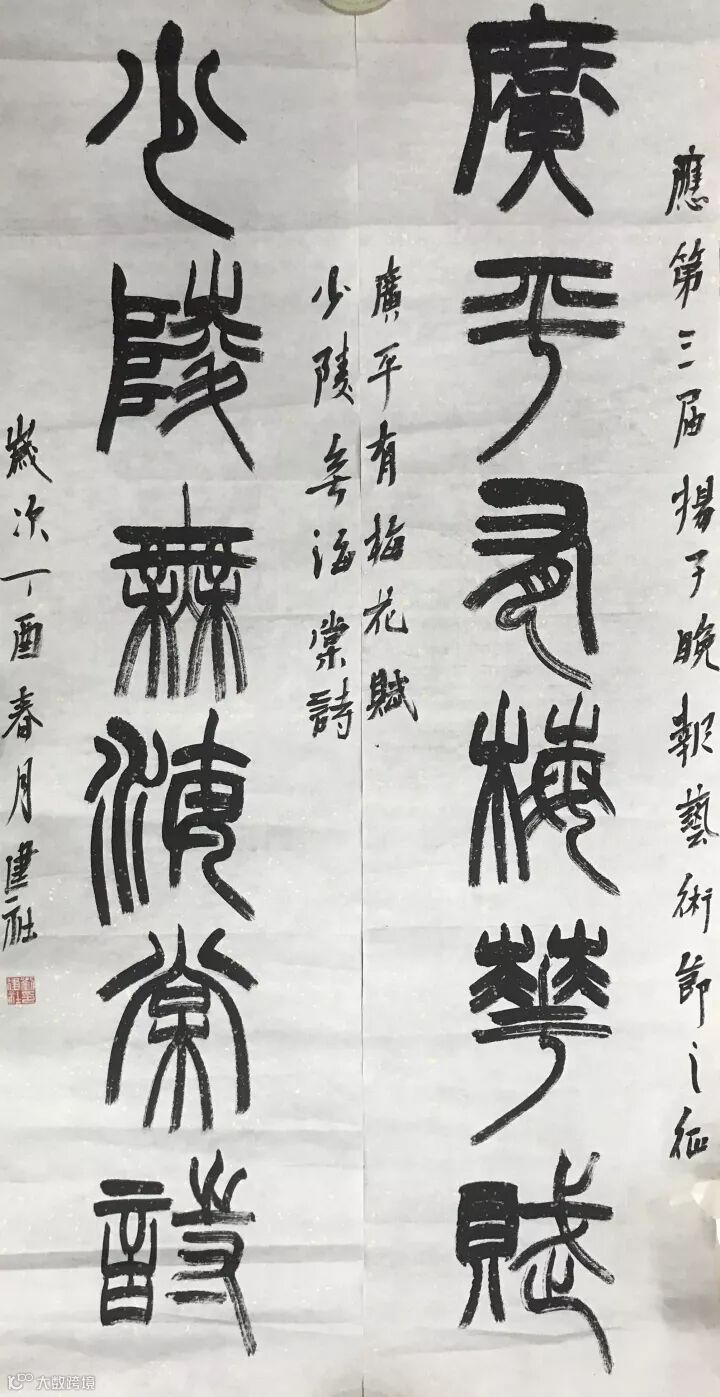 應第三屆揚子晚報藝術節之征
廣平有梅華賦
廣平有梅花賦
少陵無海棠詩
少陵無海棠詩
歲次丁酉春月建社
大数跨境